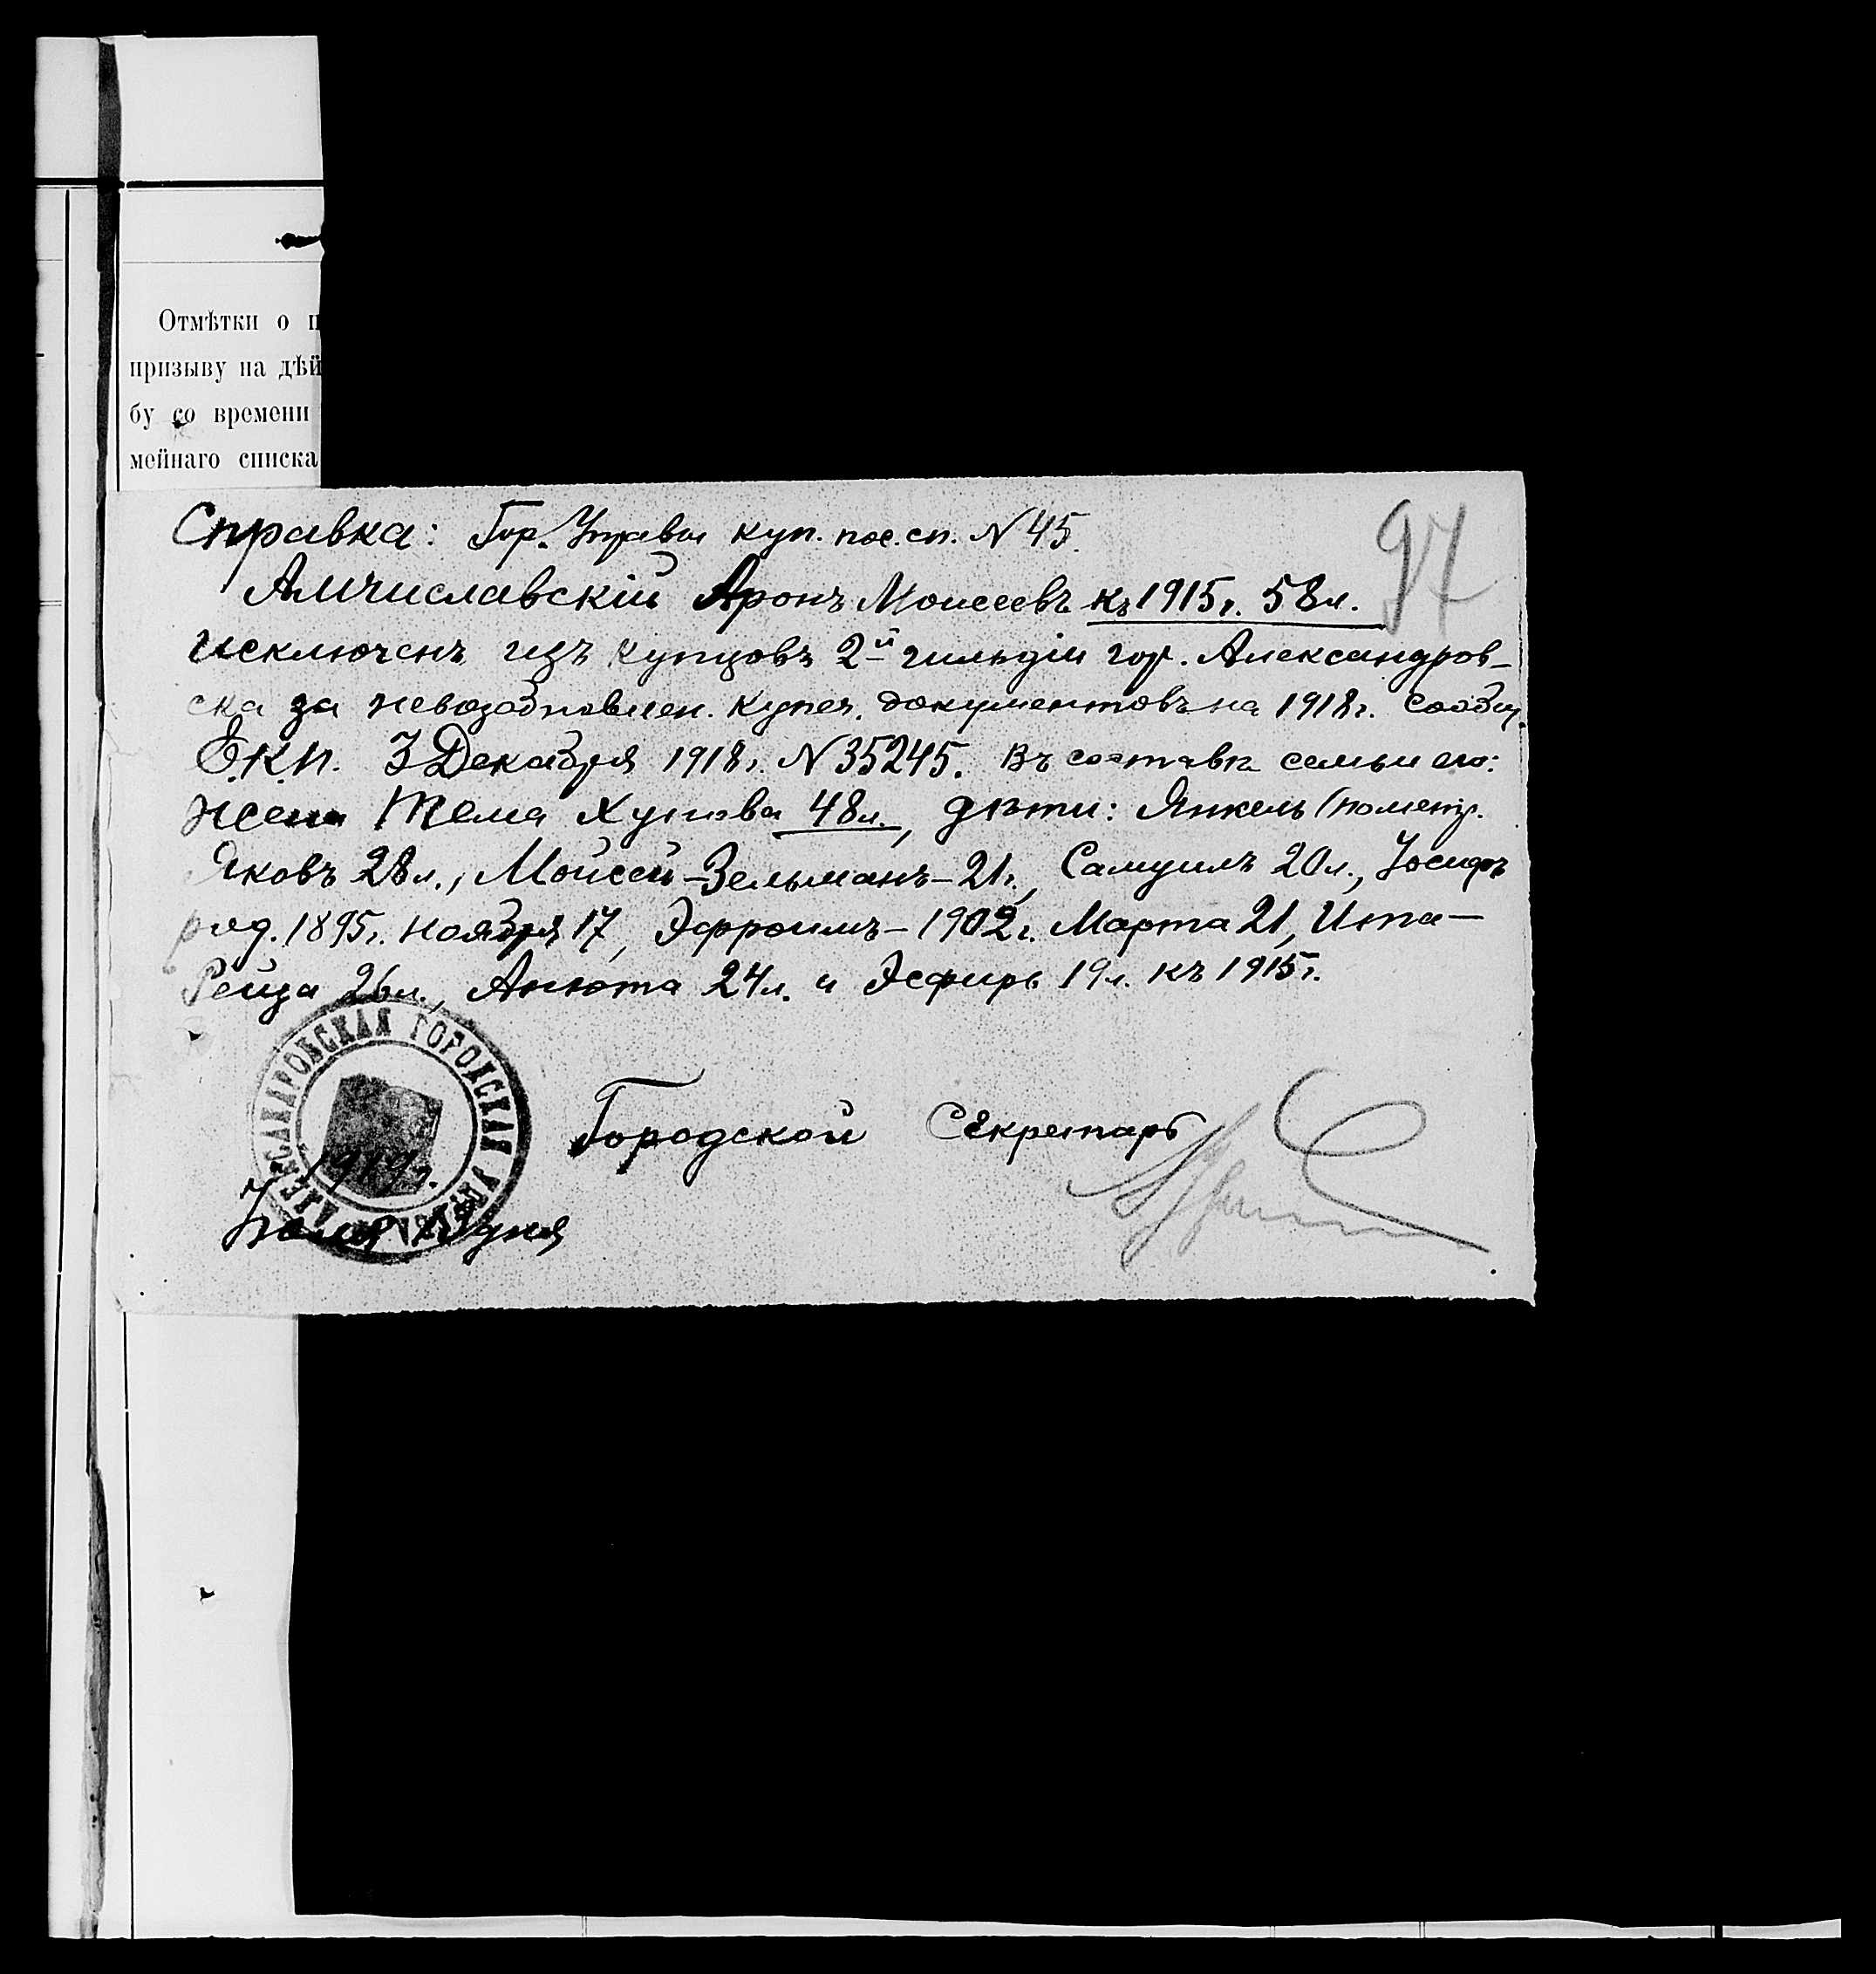 Отмѣтки о п
призыву на дѣй
бу со времени
мейнаго списка
97
Справка: Гор. Управы куп. пос. сп. N 45.
Амчиславскій Аронъ Моисеевъ къ 1915г. 58л.
исключенъ изъ купцовъ 2й гильдіи гор. Александров-
ска за невозобновлен. купеч. документовъ на 1918г. сообщ.
Е.К.П. 3 Декабря 1918г. N 35245. Въ составѣ семьи его:
жена Тема 48л., дѣти: Янкель (по метр.
Яковъ 28л., Мойсей-Зельманъ-21г., Самуилъ 20л., Іосифъ
род. 1895г. ноября 17, Эфроимъ-1902г. Марта 21, Ита-
Рейза 26л., Анюта 24л. и Эсфирь 19л. къ 1915г.
АЛЕКСАНДРОВСКАЯ ГОРОДСКАЯ УПРАВА
Городской Секретарь
191 г.
дня